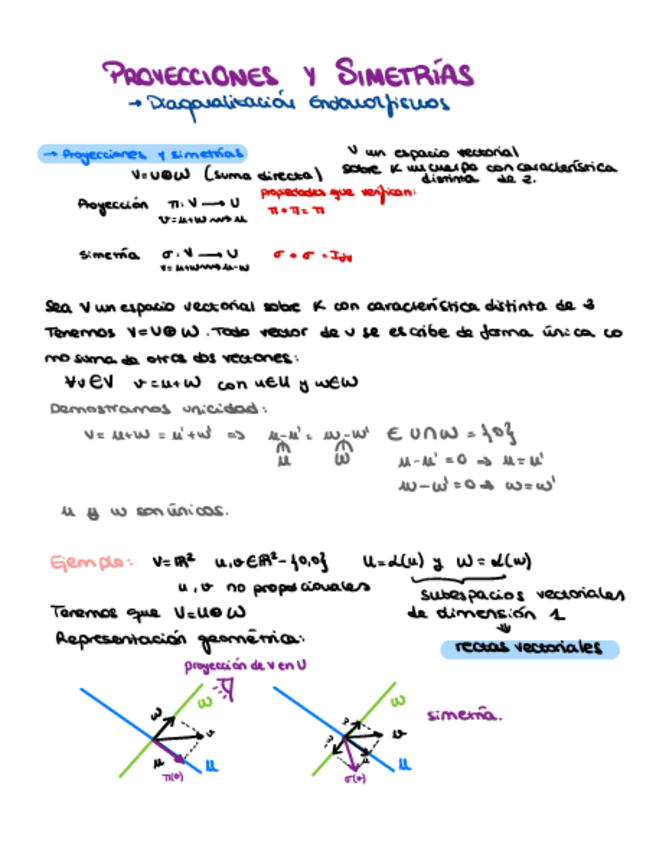 PROYECCIONES Y SIMETRÍAS
→ Diagonalización Endomorfismos
→ Proyecciones y simetrías
V=U⊕W (suma directa)
V un espacio vectorial
sobre K un cuerpo con característica
distinta de 2.
Proyección π: V → U
v=u+w ⟿ u
propiedades que verifican:
π∘π = π
Simetría σ: V → U
v=u+w ⟿ u-w
σ∘σ = Idv
Sea V un espacio vectorial sobre K con característica distinta de 2
Tenemos V=U⊕W. Todo vector de v se escribe de forma única co
mo suma de otros dos vectores:
∀v∈V v=u+w con u∈U y w∈W
Demostramos unicidad:
V= u+w = u'+w' => u-u' = w-w' ∈ U∩W = {0}
u-u'=0 => u=u'
U W
w-w'=0 => w=w'
u y w son únicos.
Ejemplo: V=ℝ² u,v∈ℝ²-{0,0} U=L(u) y W=L(w)
u, v no proporcionales
subespacios vectoriales
de dimensión 1
Tenemos que V=U⊕W
Representación geométrica:
rectas vectoriales
proyección de v en U
w W v u U π(v)
W v u U σ(v)
simetría.